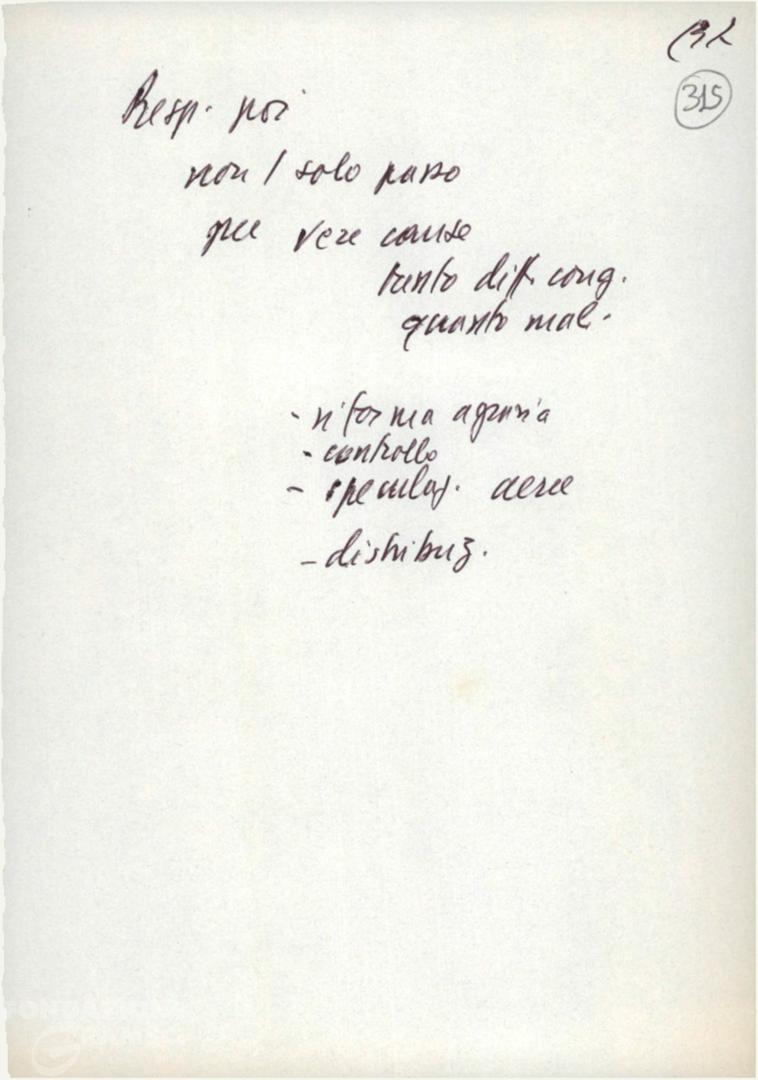 132
315
Resp. poi
non 1 solo passo
per vere cause
tanto diff. cong.
quanto mal.
- riforma agraria
- controllo
- speculaz. aeree
- distribuz.
FONDAZIONE